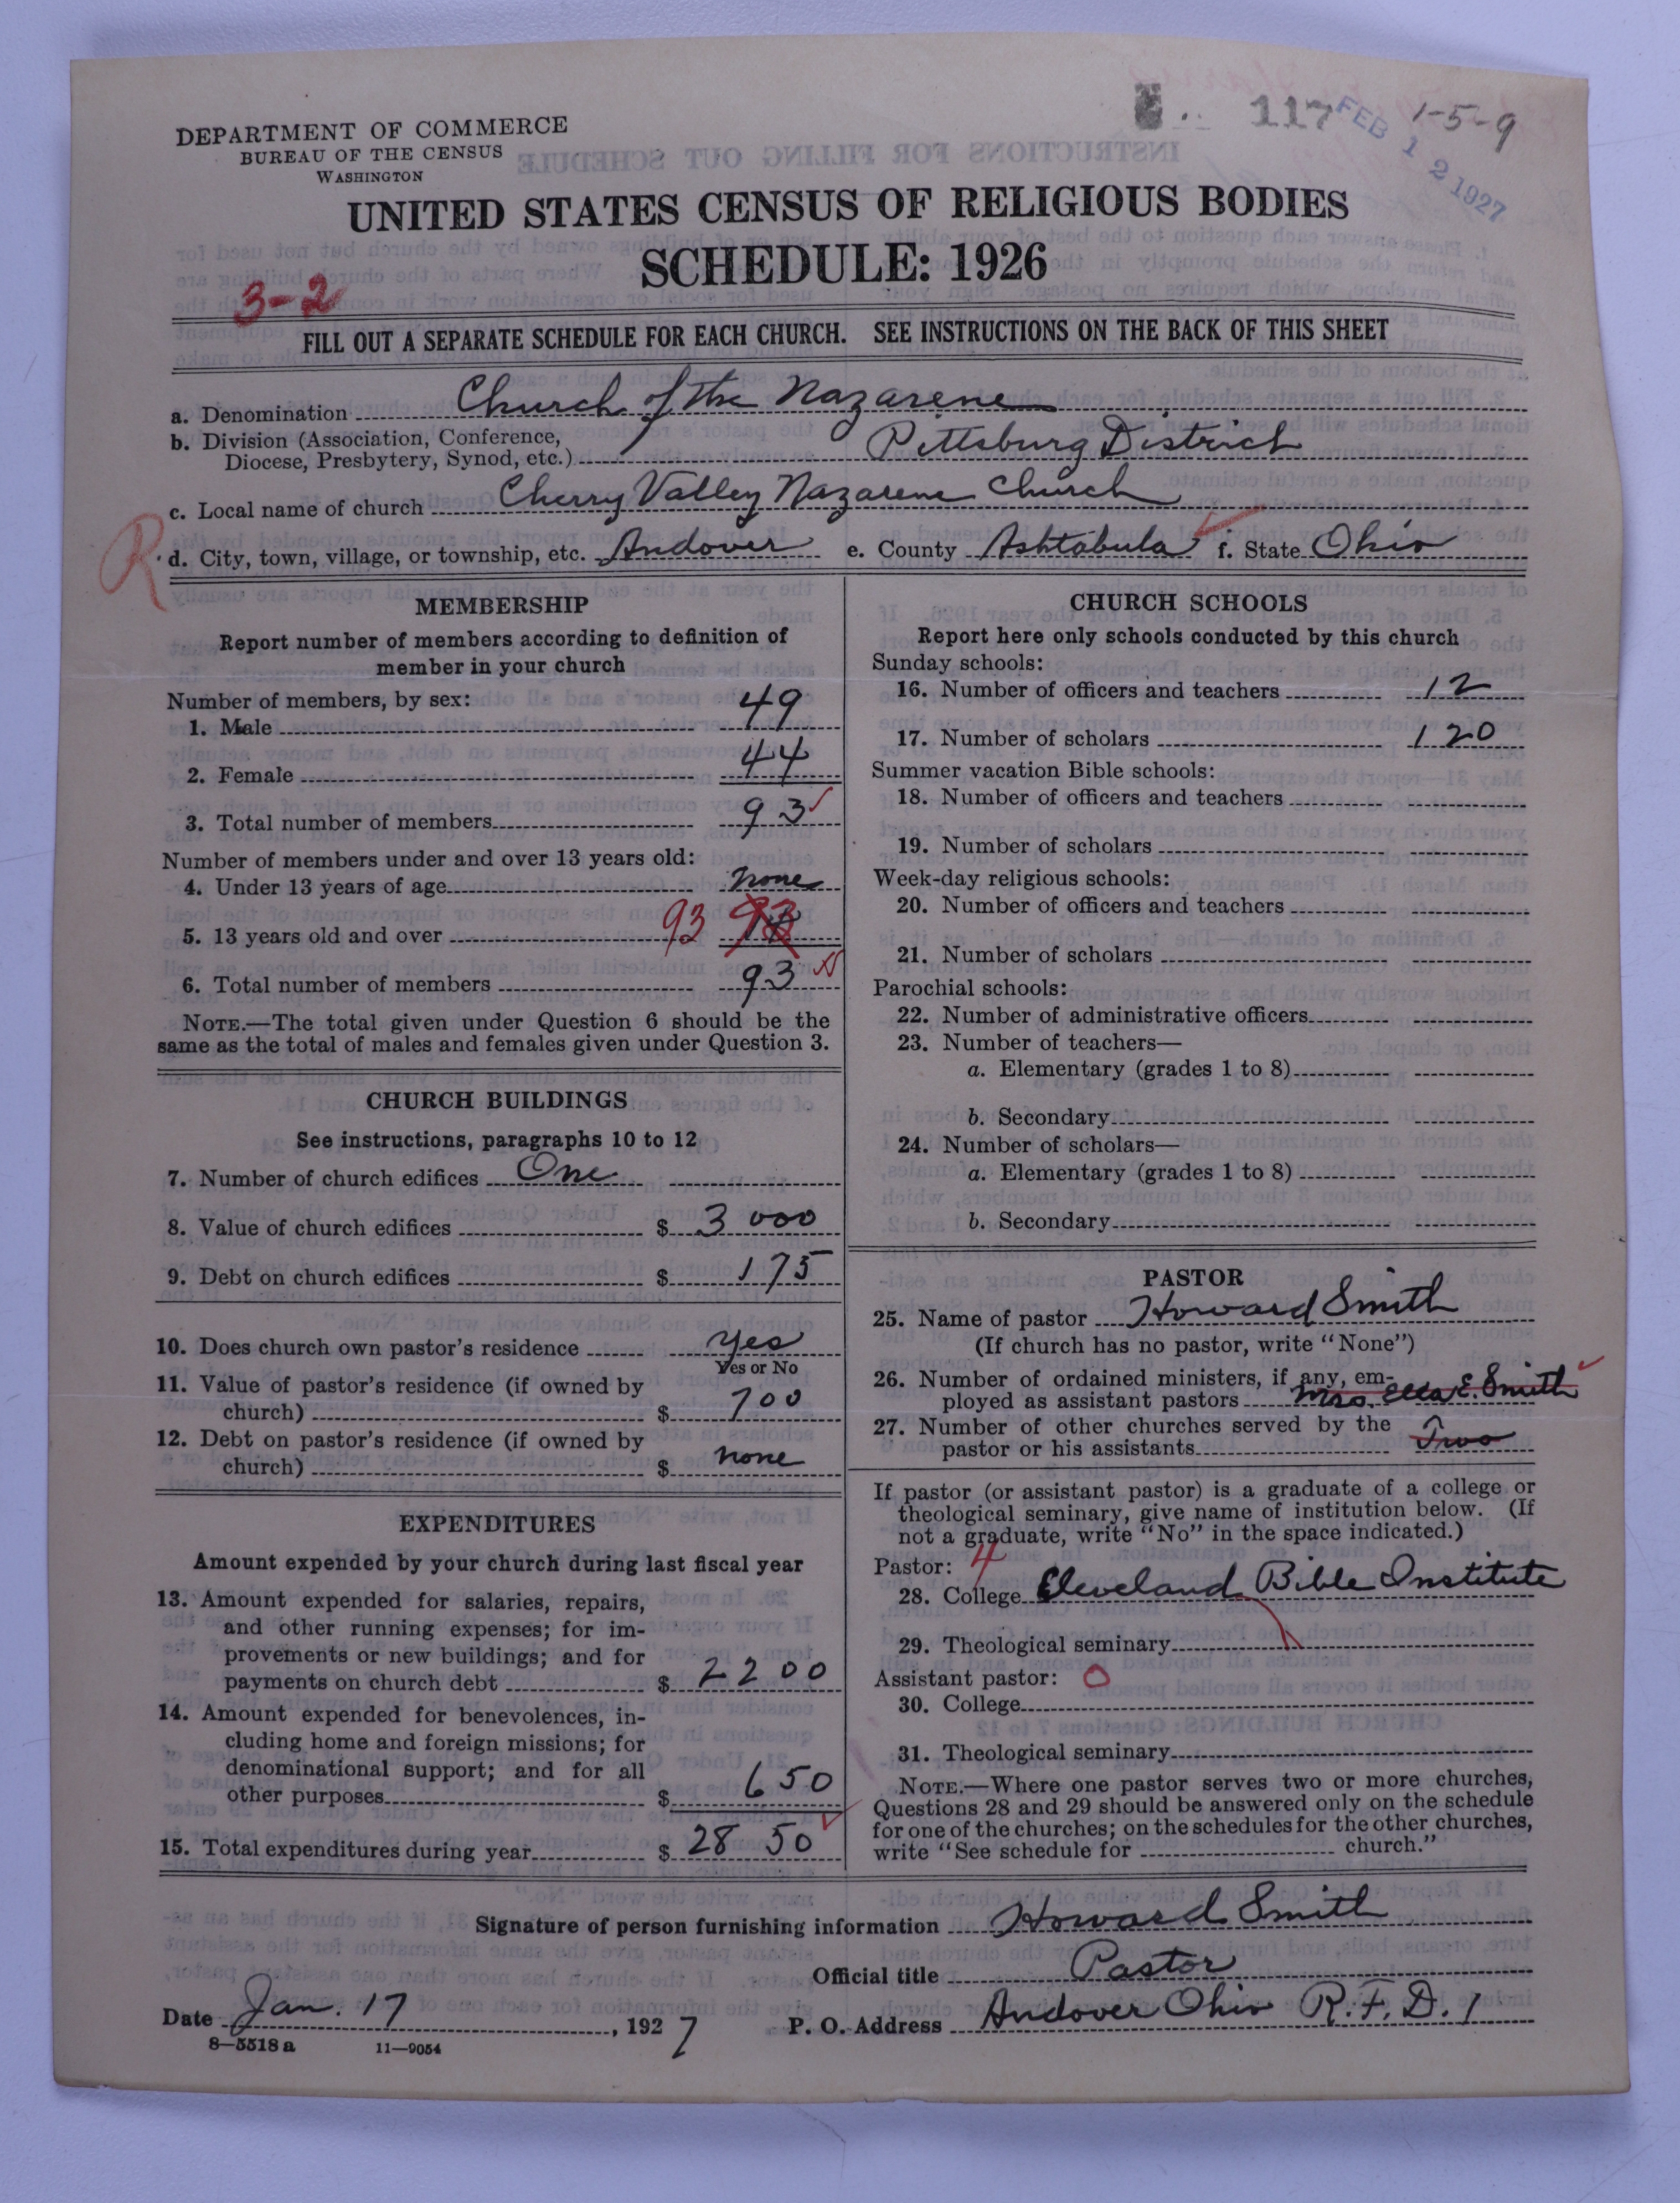 117 FEB 12 1927 1-5-9
DEPARTMENT OF COMMERCE
BUREAU OF THE CENSUS
WASHINGTON
UNITED STATES CENSUS OF RELIGIOUS BODIES
SCHEDULE: 1926
3-2
FILL OUT A SEPARATE SCHEDULE FOR EACH CHURCH. SEE INSTRUCTIONS ON THE BACK OF THIS SHEET
a. Denomination Church of the Nazarene
b. Division (Association, Conference,
Diocese, Presbytery, Synod, etc.) Pittsburg District
c. Local name of church Cherry Valley Nazarene Church
R
d. City, town, village, or township, etc. Andover e. County Ashtabula f. State Ohio
MEMBERSHIP
Report number of members according to definition of
member in your church
Number of members, by sex:
1. Male 49
2. Female 44
3. Total number of members 93
Number of members under and over 13 years old:
4. Under 13 years of age none
5. 13 years old and over 93
6. Total number of members 93
NOTE.—The total given under Question 6 should be the
same as the total of males and females given under Question 3.
CHURCH BUILDINGS
See instructions, paragraphs 10 to 12
7. Number of church edifices One
8. Value of church edifices $ 3 000
9. Debt on church edifices $ 175
10. Does church own pastor's residence yes
Yes or No
11. Value of pastor's residence (if owned by
church) $ 700
12. Debt on pastor's residence (if owned by
church) $ none
EXPENDITURES
Amount expended by your church during last fiscal year
13. Amount expended for salaries, repairs,
and other running expenses; for im-
provements or new buildings; and for
payments on church debt $ 2200
14. Amount expended for benevolences, in-
cluding home and foreign missions; for
denominational support; and for all
other purposes $ 650
15. Total expenditures during year $ 28 50
CHURCH SCHOOLS
Report here only schools conducted by this church
Sunday schools:
16. Number of officers and teachers 12
17. Number of scholars 120
Summer vacation Bible schools:
18. Number of officers and teachers
19. Number of scholars
Week-day religious schools:
20. Number of officers and teachers
21. Number of scholars
Parochial schools:
22. Number of administrative officers
23. Number of teachers—
a. Elementary (grades 1 to 8)
b. Secondary
24. Number of scholars—
a. Elementary (grades 1 to 8)
b. Secondary
PASTOR
25. Name of pastor Howard Smith
(If church has no pastor, write "None")
26. Number of ordained ministers, if any, em-
ployed as assistant pastors Mrs. Ella E. Smith
27. Number of other churches served by the
pastor or his assistants Two
If pastor (or assistant pastor) is a graduate of a college or
theological seminary, give name of institution below. (If
not a graduate, write "No" in the space indicated.)
Pastor: 4
28. College Cleveland Bible Institute
29. Theological seminary
Assistant pastor: 0
30. College
31. Theological seminary
NOTE.—Where one pastor serves two or more churches,
Questions 28 and 29 should be answered only on the schedule
for one of the churches; on the schedules for the other churches,
write "See schedule for church."
Signature of person furnishing information Howard Smith
Official title Pastor
Date Jan. 17, 1927 P. O. Address Andover Ohio R.F.D. 1
8—5518 a 11—9054